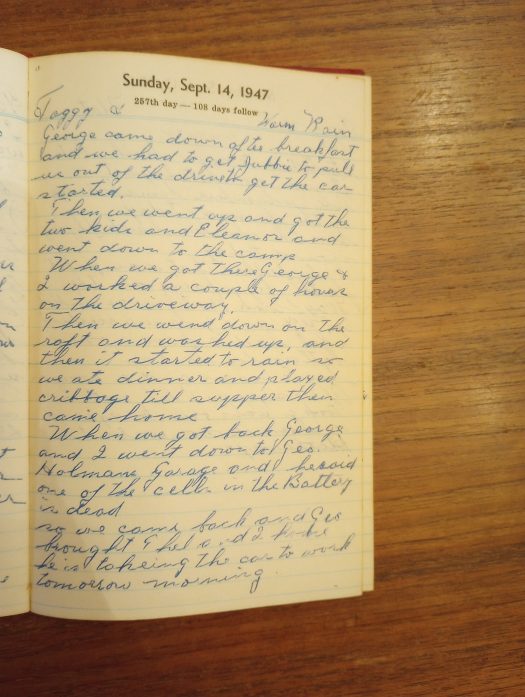 Sunday, Sept. 14, 1947
257th day — 108 days follow
Foggy & Warm Rain
George came down after breakfast
and we had to get Jubbie to pull
us out of the drive to get the car
started.
Then we went up and got the
two kids and Eleanor and
went down to the camp
When we got there George &
I worked a couple of hours
on the driveway.
Then we went down on the
raft and washed up, and
then it started to rain so
we ate dinner and played
cribbage till supper then
came home
When we got back George
and I went down to Geo.
Holmans Garage and he said
one of the cells in the Battery
is dead
so we came back and Geo
brought Thel and I home
he is takeing the car to work
tomorrow morning.